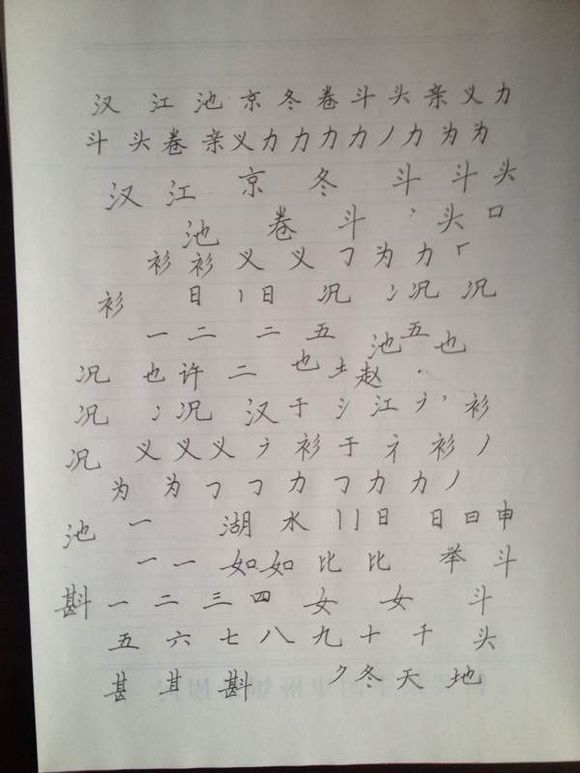 汉 江 池 京 冬 卷 斗 头 亲 义 力
斗 头 卷 亲 义 力 力 力 力 丿 力 为 为
汉 江 京 冬 斗 斗 头
池 卷 斗 冫 头 口
衫 衫 义 义 ㇆ 为 力
衫 日 丨 日 况 冫 况 况
一 二 二 五 池 五 也
况 也 许 二 也 土 赵
况 冫 况 汉 于 氵 江 衫
况 义 义 义 衫 于 衤 衫 丿
为 为 ㇆ ㇆ 力 ㇆ 力 力 丿
池 一 湖 水 丨 丨 日 日 曰 申
一 一 如 如 比 比 举 斗
斟 一 二 三 四 女 女 斗
五 六 七 八 九 十 千 头
甚 其 斟 冬 天 地